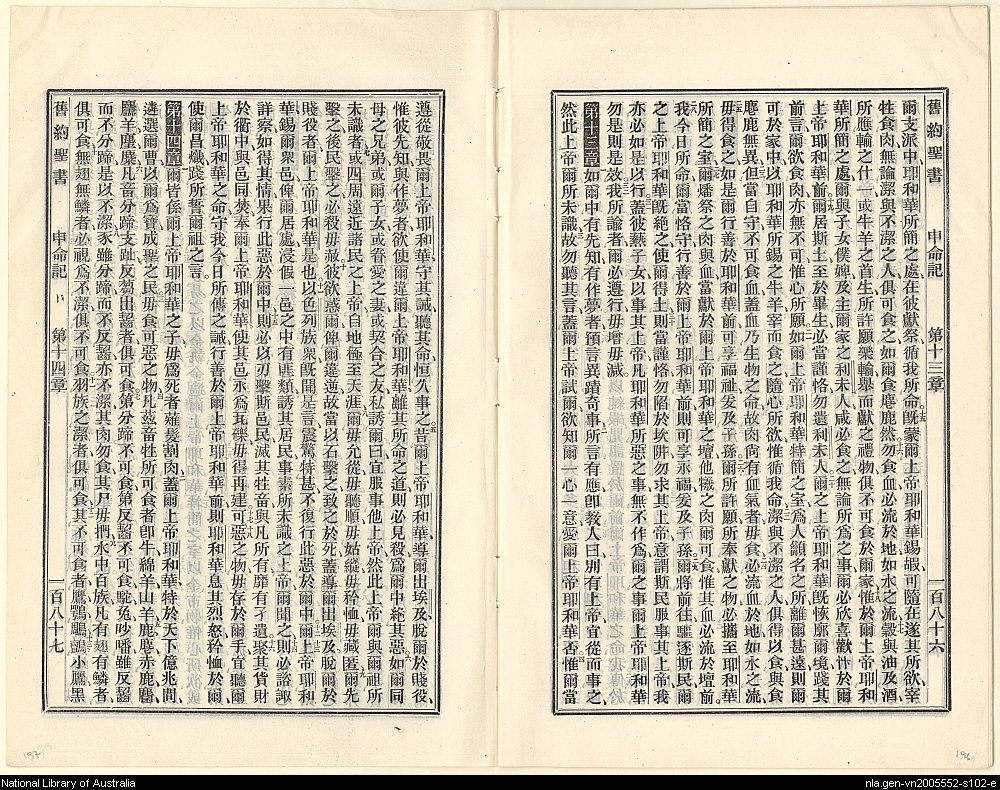 舊約聖書 申命記 第十三章 一百八十六
爾支派中耶和華所簡之處在彼獻祭循我所命既蒙爾上帝耶和華錫嘏可隨在遂其所欲宰
牲食肉無論潔與不潔之人俱可食之如爾食麈鹿然勿食血必流於地如水之流穀與油及酒
所應輸之什一或牛羊之首生所許願樂輸舉而獻之禮物俱不可食於爾家惟於爾上帝耶和
華所簡之處爾與子女僕婢及主爾家之利未人咸必食之無論所為之事爾必欣喜歡忭於爾
上帝耶和華前爾居斯土至於畢生必當謹恪勿遺利未人爾之上帝耶和華既恢廓爾境踐其
前言爾欲食肉亦無不可惟心所願如爾上帝耶和華特簡之室為人籲名之所離爾甚遠則爾
可於家中以耶和華所錫之牛羊宰而食之隨心所欲惟循我命潔與不潔之人俱得食以與食
麈鹿無異但當自守不可食血蓋血乃生物之命故肉尚有血氣者毋食必流血於地如水之流
毋得食之如是爾行善於耶和華前可享福祉爰及子孫爾所許願所奉獻之物必攜至耶和華
所簡之室爾燔祭之肉與血當獻於爾上帝耶和華之壇他犧之肉爾可食惟其血必流於壇前
我今日所命爾當恪守行善於爾上帝耶和華前則可享永福爰及子孫爾將前往驅逐斯民爾
之上帝耶和華既絕之使爾得土則當謹恪勿陷於坎阱勿求其上帝意謂斯民服事其上帝我
亦必如是以行蓋彼爇子女以事其上帝凡耶和華所惡之事無不作為爾之事爾上帝耶和華
勿是則是效我所諭者爾必遵行毋增毋減
第十三章 如爾中有先知有作夢者預言異蹟奇事所言有應即教人曰別有上帝宜從而事之
然此上帝爾所未識故勿聽其言蓋爾上帝試爾欲知爾一心一意愛爾上帝耶和華否惟爾當
遵從敬畏爾上帝耶和華守其誡聽其命恒久事之昔爾上帝耶和華導爾出埃及脫爾於賤役
惟彼先知與作夢者欲使爾違爾上帝耶和華離其所命之道則必見殺為爾中絕其惡如爾同
母之兄弟或爾子女或眷愛之妻或契合之友私誘爾曰宜服事他上帝然此上帝爾與爾祖所
未識者或四周遠近諸民之上帝自地極至天涯爾毋允從毋聽順毋姑縱毋矜恤毋藏匿爾先
擊之後民擊之必殺毋赦彼欲惑爾俾爾違逆故當以石擊之致之於死蓋導爾出埃及脫爾於
賤役者爾上帝耶和華是也以色列族眾既聞是言震驚特甚不復行此惡於爾中爾上帝耶和
華錫爾眾邑俾爾居處浸假一邑之中有匪類誘其居民事素所未識之上帝爾聞之則必諮諏
詳察如得其情果行此惡於爾中則必以刃擊斯邑民滅其牲畜與凡所有靡有孑遺聚其貨財
於衢中與邑同焚奉爾上帝耶和華使其邑永為瓦礫毋得再建可惡之物毋存於爾手宜聽爾
上帝耶和華之命守我今日所傳之誡行善於爾上帝耶和華前則耶和華息其烈怒矜恤於爾
使爾昌熾踐所誓爾祖之言
第十四章 爾皆係爾上帝耶和華之子毋為死者薙髮割肉蓋爾上帝耶和華特於天下億兆間
遴選爾曹以爾為寶成聖之民毋食可惡之物凡茲畜牲所可食者即牛綿羊山羊鹿麈赤鹿麢
麢羊麈麃凡畜分蹄支趾反芻出齝者俱可食第分蹄不可食第反齝不可食駝兔沙噃雖反齝
而不分蹄是以不潔豕雖分蹄而不反齝亦不潔其肉勿食其尸毋捫水中百族凡有翅有鱗者
俱可食無翅無鱗者必視為不潔俱不可食羽族之潔者俱可食其不可食者鷹鶚鵰鸇小鷹黑
舊約聖書 申命記 第十四章 一百八十七
197
196
National Library of Australia
nla.gen-vn2005552-s102-e